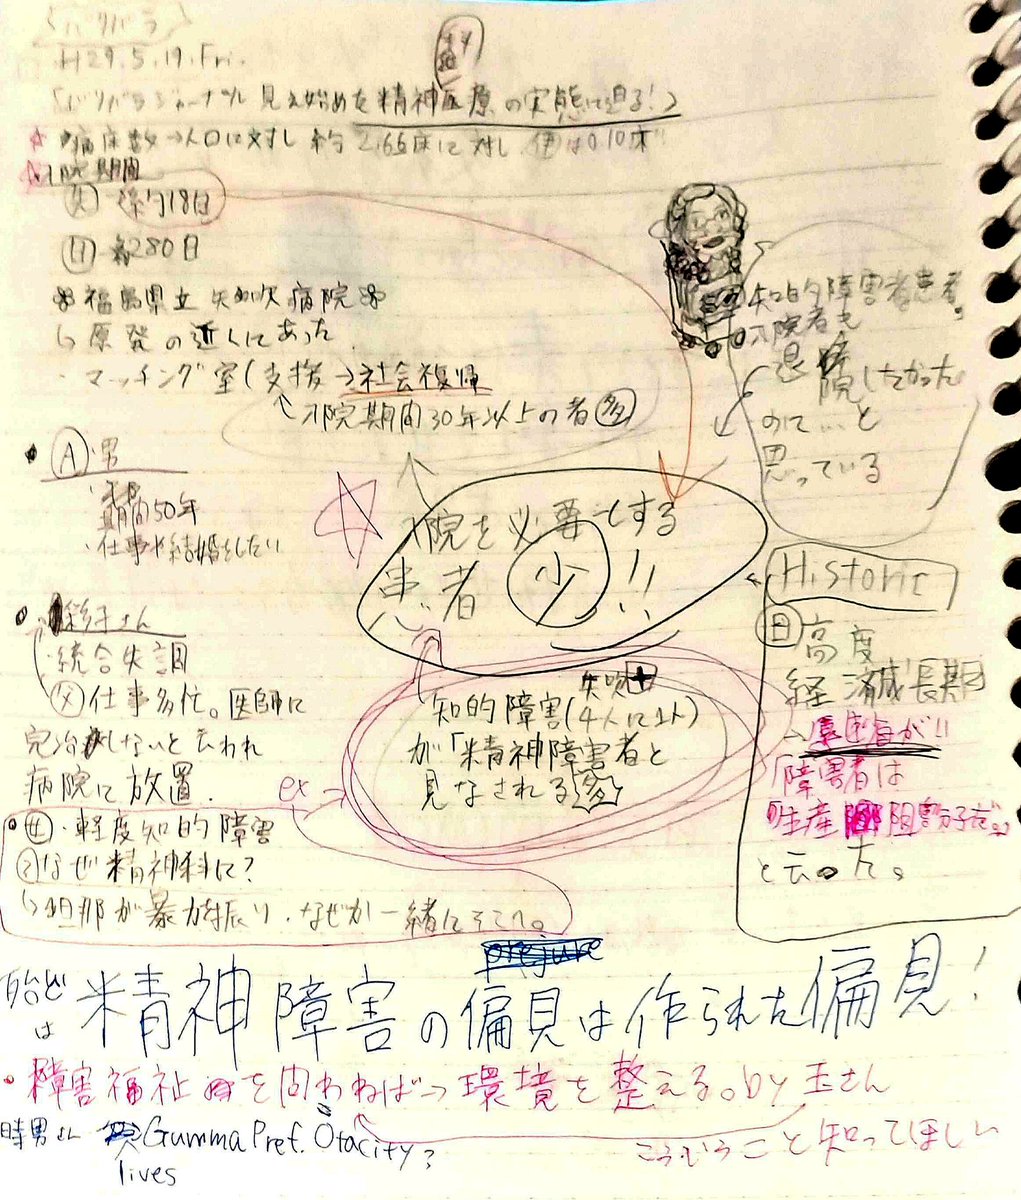 バリバラ
H29.5.19.Fri.
「バリバラジャーナル 見え始めた精神医療の実態に迫る!」
☆・病床数→人口に対し 約2.66床に対し、伊は0.10床
☆入院期間
約18日
日 約280日
福島県立 矢吹病院
↳原発の近くにあった
・マッチング室(支援→社会復帰
↖入院期間30年以上の者 多
知的障害者患者。
入院者も
退院したかった
のて…と
思っている
・A 男
・期間50年
・仕事や結婚をしたい
入院を必要とする
患者 少!!
Historic
日 高度
経済成長期
→厚生省が
「障害者は
生産阻害分子だ。」
と云った。
・彩子さん
・統合失調
父 仕事多忙。医師に
完治しないと云われ
病院に放置.
矢吹
知的障害(4人に1人)
が「精神障害者と
見なされる 多
ex→
・女・軽度知的障害
?なぜ精神科に?
↳旦那が暴力振り、なぜか一緒にそこへ。
殆どは 精神障害の偏見は作られた偏見!
・障害福祉を問わねば→環境を整える。by 玉さん
時男さん Gumma Pref. Otacity?
lives
こういうこと知ってほしい